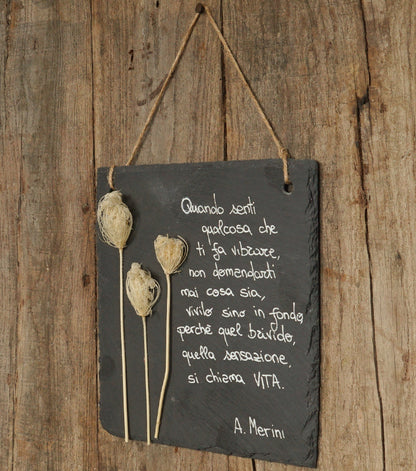 Quando senti
qualcosa che
ti fa vibrare,
non domandarti
mai cosa sia,
vivilo sino in fondo,
perchè quel brivido,
quella sensazione,
si chiama VITA.
A. Merini